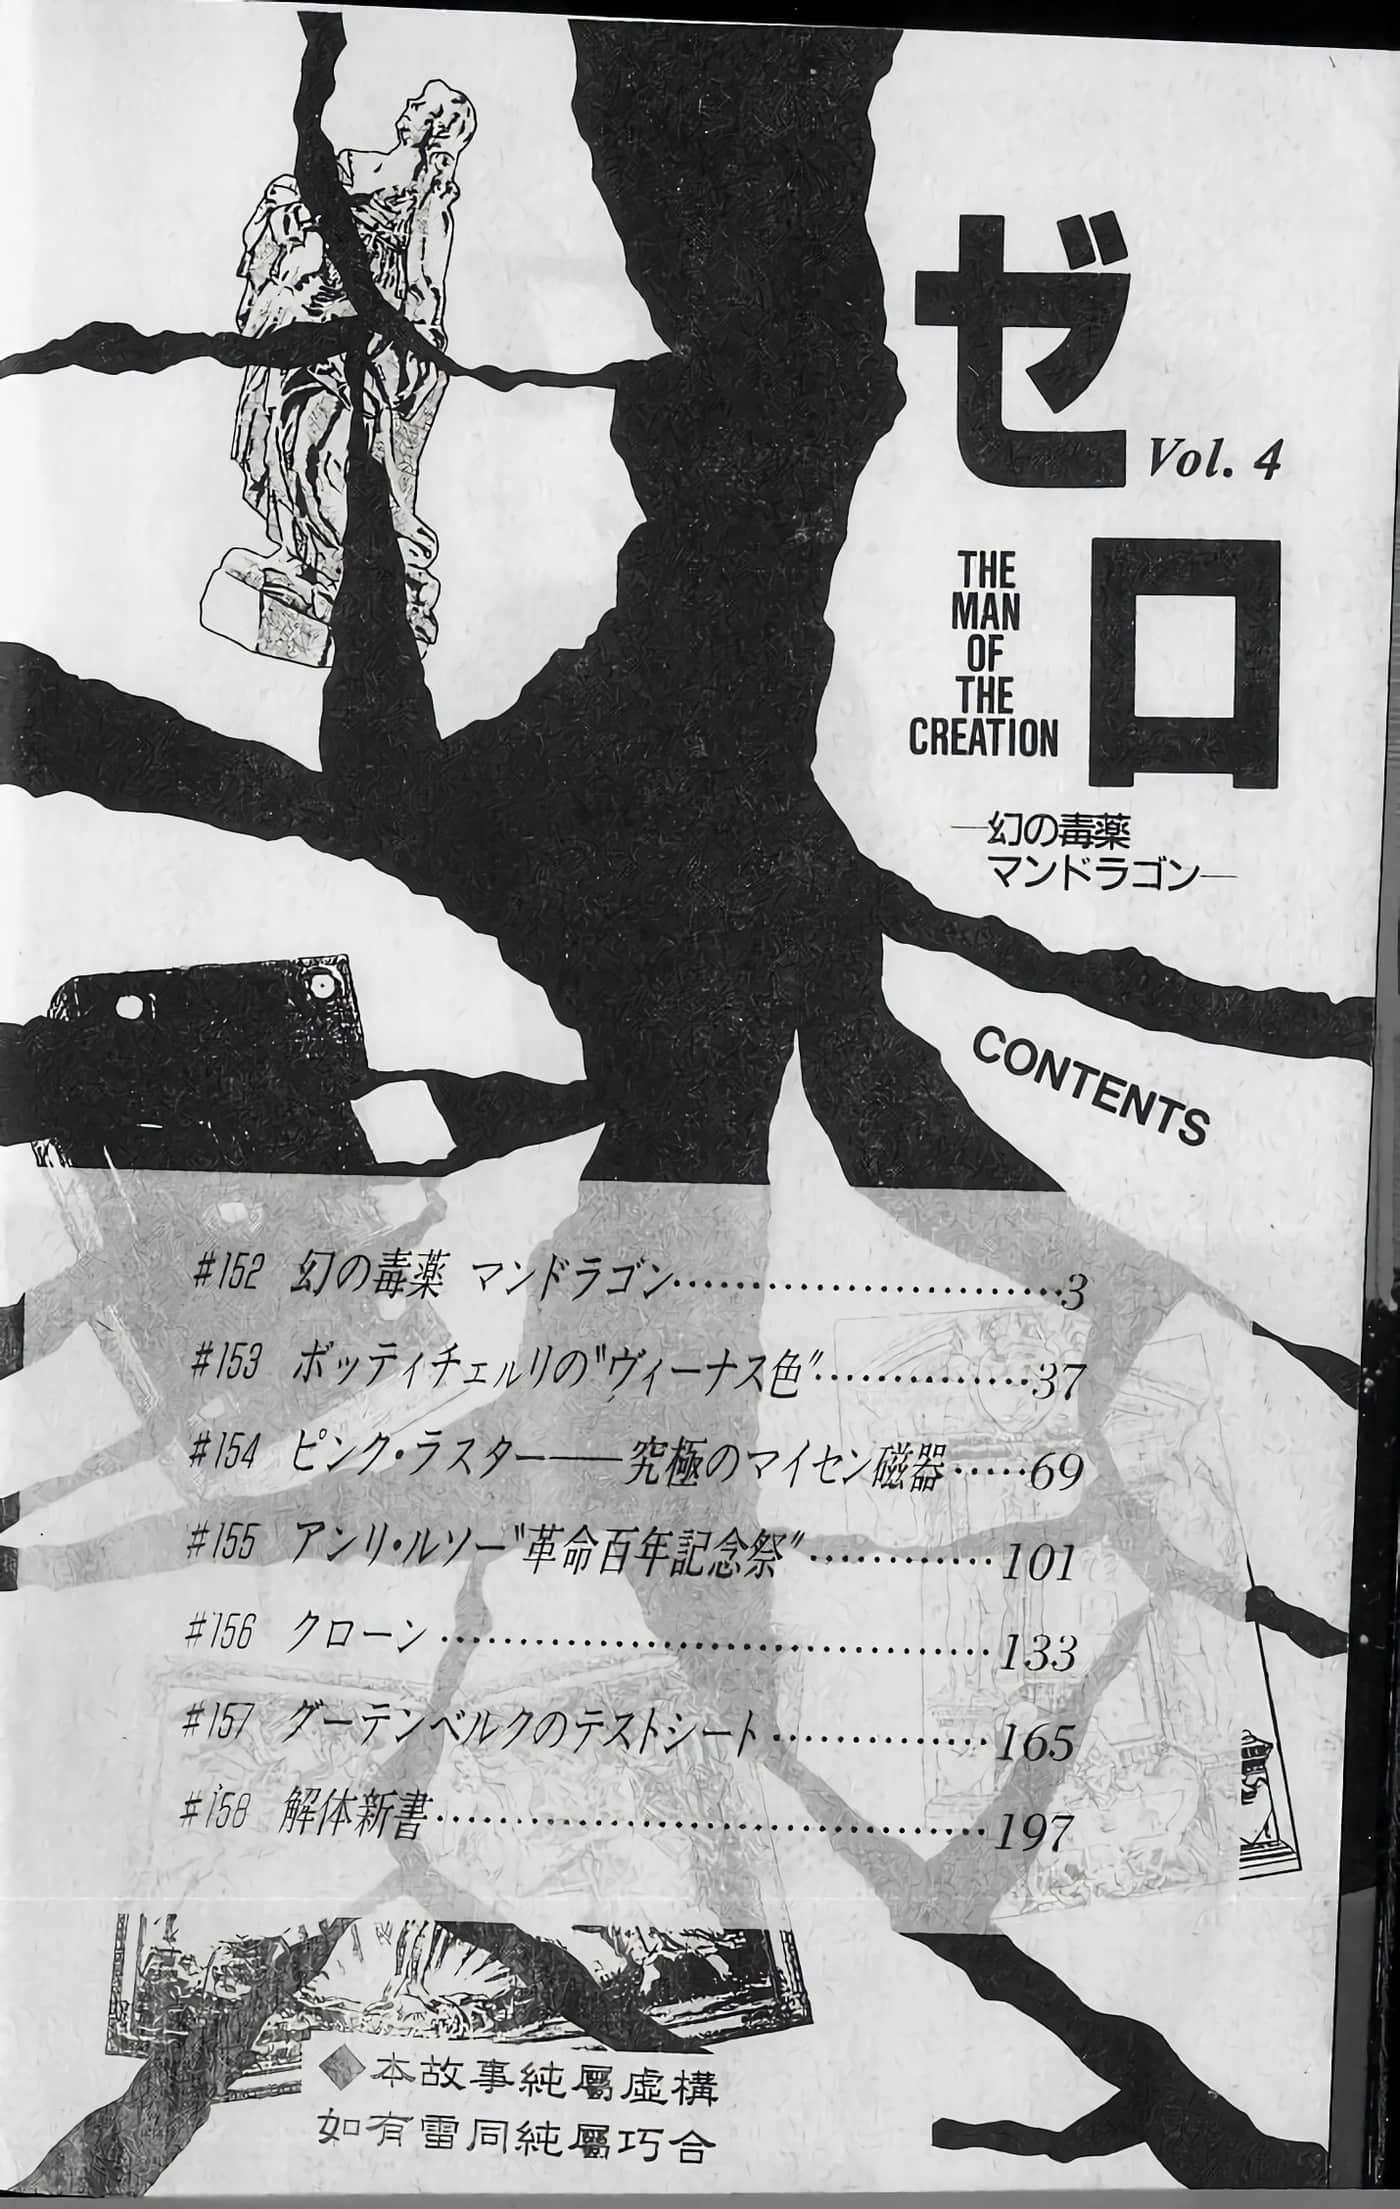 ゼロ
Vol. 4
THE
MAN
OF
THE
CREATION
―幻の毒薬
マンドラゴン―
CONTENTS
#152 幻の毒薬 マンドラゴン…………………………3
#153 ボッティチェルリの〝ヴィーナス色〟……………37
#154 ピンク・ラスター――究極のマイセン磁器……69
#155 アンリ・ルソー〝革命百年記念祭〟…………101
#156 クローン…………………………………133
#157 グーテンベルクのテストシート……………165
#158 解体新書…………………………………197
◆本故事純屬虛構
如有雷同純屬巧合